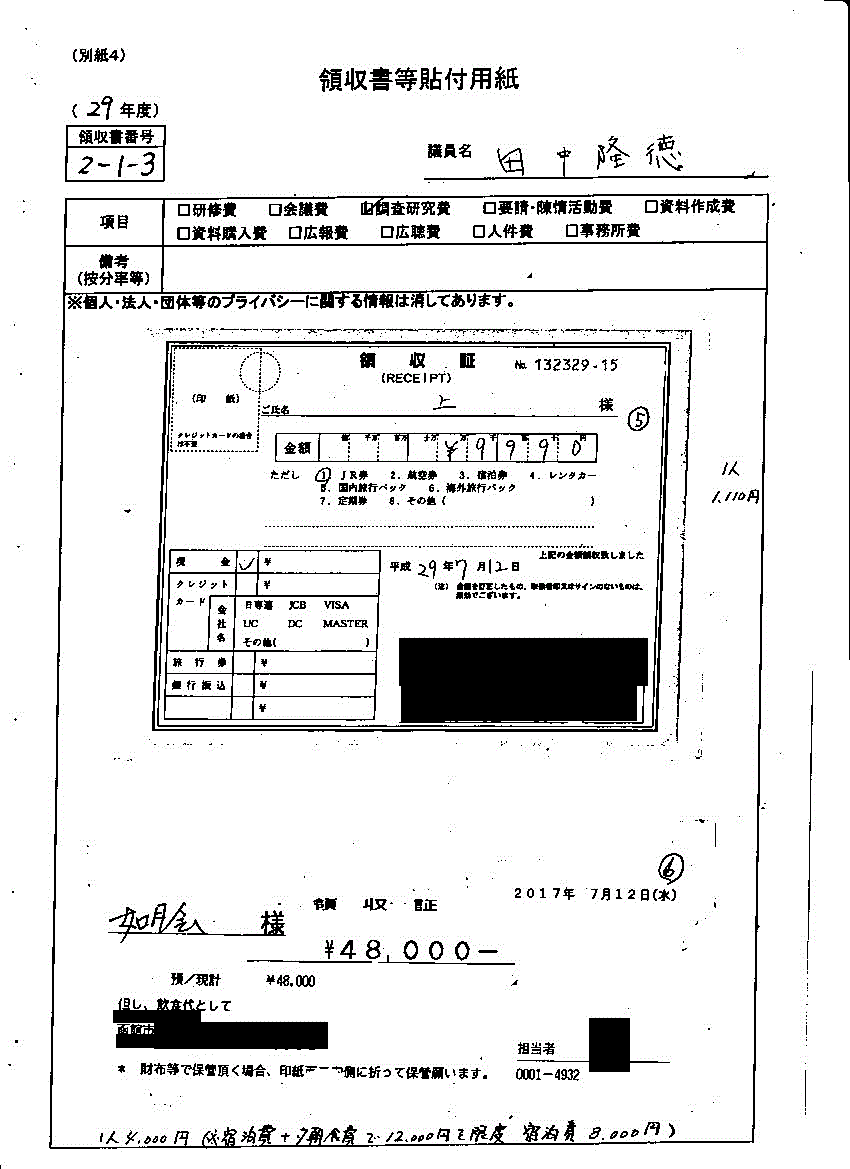 (別紙4)
領収書等貼付用紙
(29年度)
領収書番号
2-1-3
議員名 田中隆徳
項目
□研修費 □会議費 ☑調査研究費 □要請・陳情活動費 □資料作成費
□資料購入費 □広報費 □広聴費 □人件費 □事務所費
備考
(按分率等)
※個人・法人・団体等のプライバシーに関する情報は消してあります。
領収証
(RECEIPT)
No. 132329-15
(印 紙)
クレジットカードの場合
は不要
ご氏名 上 様
⑤
金額 ¥9990
億 千万 百万 十万 万 千 百 十 円
1人
1,110円
ただし ① JR券 2. 航空券 3. 宿泊券 4. レンタカー
5. 国内旅行パック 6. 海外旅行パック
7. 定期券 8. その他( )
上記の金額領収致しました
平成29年7月12日
(注) 金額を訂正したもの、取扱者印又はサインのないものは、
無効でございます。
現金 ✓ ¥
クレジット ¥
カード
会社名
日専連 JCB VISA
UC DC MASTER
その他( )
旅行券 ¥
銀行振込 ¥
¥
⑥
2017年 7月12日(水)
領収証
如月会 様
¥48,000-
預/現計 ¥48,000
但し、飲食代として
函館市
担当者
0001-4932
* 財布等で保管頂く場合、印紙 側に折って保管願います。
1人4,000円 (宿泊費+夕朝食費で12,000円を限度 宿泊費8,000円)